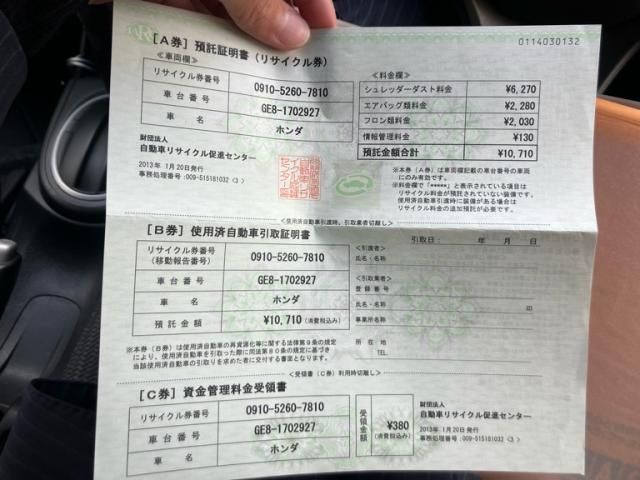 0114030132
[A券] 預託証明書 (リサイクル券)
<車両欄>
リサイクル券番号 0910-5260-7810
車台番号 GE8-1702927
車名 ホンダ
財団法人
自動車リサイクル促進センター
2013年 1月20日発行
事務処理番号:009-515181032 <3>
<料金欄>
シュレッダーダスト料金 ¥6,270
エアバッグ類料金 ¥2,280
フロン類料金 ¥2,030
情報管理料金 ¥130
預託金額合計 ¥10,710
※本券(A券)は車両欄記載の車台番号の車両
にのみ有効です。
※料金欄で「*****」と表示されている項目は
リサイクル料金が預託されていない装備です。
使用済自動車引渡時に装備がある場合は
リサイクル料金の追加預託が必要です。
<使用済自動車引渡時、引取業者切離し>
[B券] 使用済自動車引取証明書
リサイクル券番号
(移動報告番号) 0910-5260-7810
車台番号 GE8-1702927
車名 ホンダ
預託金額 ¥10,710 (消費税込み)
※本券(B券)は使用済自動車の再資源化等に関する法律第9条の規定
により、使用済自動車を引取った際に同法第80条の規定に基づき
当該使用済自動車の引取りを求めた者に交付する書面となります。
引取日: 年 月 日
<引渡者>
氏名・名称
<引取業者>
登録番号
氏名・名称 印
事業所名
所在地
TEL.
<受領書(C券)利用時切離し>
[C券] 資金管理料金受領書
リサイクル券番号 0910-5260-7810
車台番号 GE8-1702927
車名 ホンダ
受領金額 ¥380
(消費税込み)
財団法人
自動車リサイクル促進センター
2013年 1月20日発行
事務処理番号:009-515181032 <3>